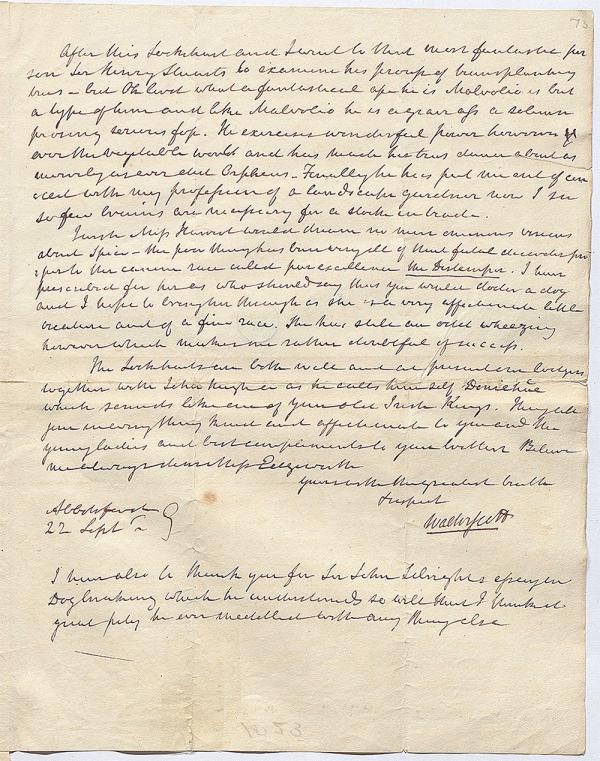 73
After this Lockhart and I went to that most fantastic per
son Sir Henry Stuarts to examine his proofs of transplanting
trees – but Oh lord what a fantastical ape he is Malvolio is but
a type of him and like Malvolio he is a grave ass a solemn
prosing serious fop. He exercises wonderful power however
over the vegetable world and has made his trees dance about as
merrily as ever did Orpheus – Finally he has put me out of con
ceit with my profession of a landscape gardener now I see
so few brains are necessary for a stock in trade.
I wish Miss Harriet would dream no more ominous visions
about Spice – the poor thing has been very ill of that fatal disorder pro
per to the canine race called par excellence the Distemper. I have
prescribed for her as who should say thus you would doctor a dog
and I hope to bring her through as she is a very affectionate little
creature and of a fine race. She has still an odd wheezing
however which makes me rather doubtful of success.
The Lockharts are both well and at present our lodgers
together with John Hugh or as he calls himself Donichue
which sounds like one of your old Irish Kings. They all
join in everything kind and affectionate to you and the
young ladies and best compliments to your brother Believe
me always dear Miss Edgeworth
yours with the greatest truth
& respect
Walter Scott
Abbotsford
22 Sept
I have also to thank you for Sir John Sebrights essay on
Dogbreaking which he understands so well that I think it
great pity he ever meddled with any thing else